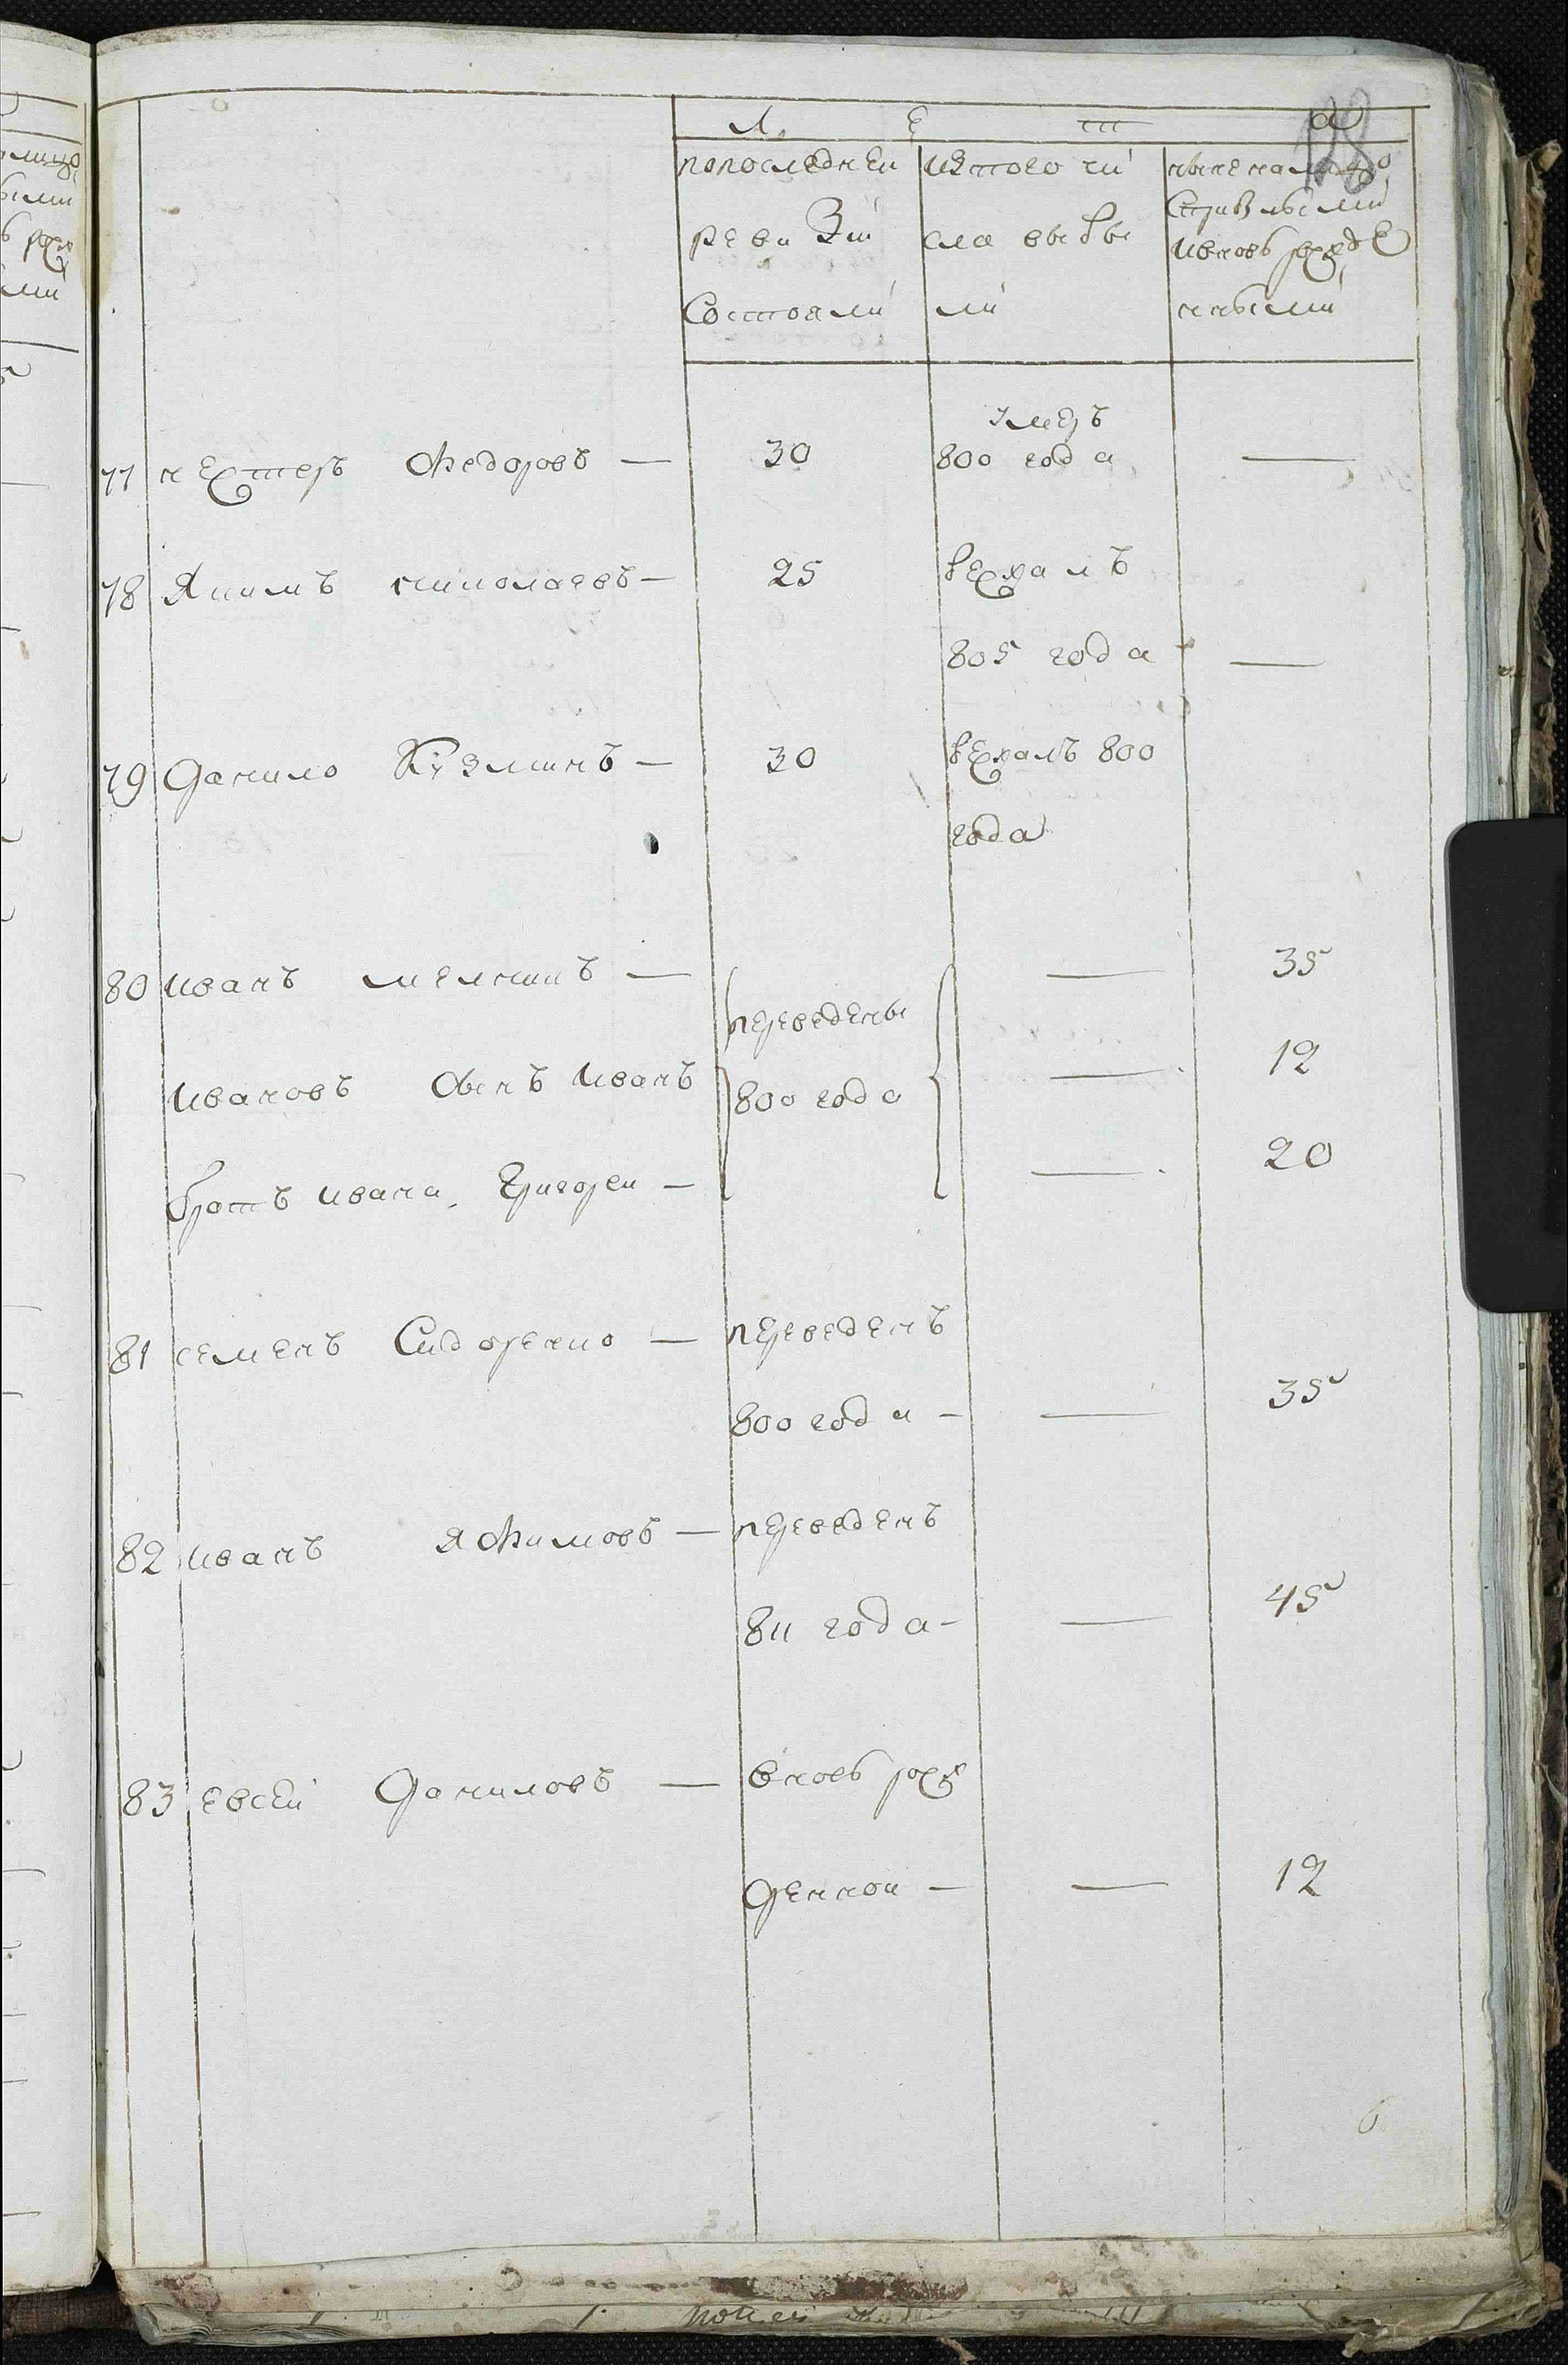 Л Е Т А
попоследней
ревизии
Состояли
изтого чи
сла выбы
ли
ныне налицо
Сприбылыми
ивновь рожде
нными
умеръ
77 нестеръ Федоровъ — 30 800 года —
78 Якимъ николаевъ — 25 бежалъ
805 года —
79 Данило Кузминъ — 30 бежалъ 800
года
80 иванъ мелникъ — — 35
переведены
Ивановъ сынъ Иванъ 800 года — 12
братъ ивана Григореи — — 20
81 семенъ Сидоренко — переведенъ
800 года — — 35
82 иванъ Яфимовъ — переведенъ
811 года — — 45
83 евсеи Даниловъ — вновь рож
денной — — 12